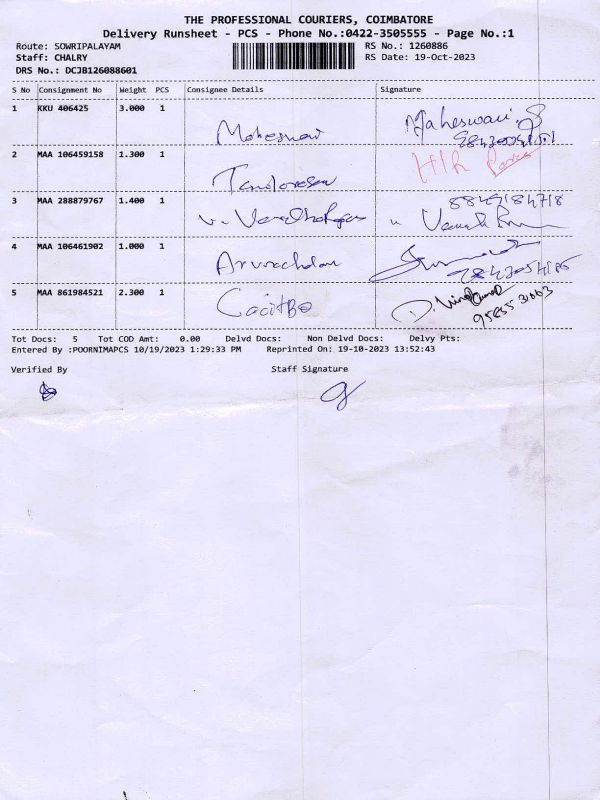 THE PROFESSIONAL COURIERS, COIMBATORE
Delivery Runsheet - PCS - Phone No.:0422-3505555 - Page No.:1
Route: SOWRIPALAYAM
RS No.: 1260886
Staff: CHALRY
RS Date: 19-Oct-2023
DRS No.: DCJB126088601
S No Consignment No Weight PCS Consignee Details Signature
1 KKU 406425 3.000 1 Maheswari Maheswari.S
2 MAA 106459158 1.300 1 H/R
3 MAA 288879767 1.400 1 V.
4 MAA 106461902 1.000 1
5 MAA 861984521 2.300 1
Tot Docs: 5 Tot COD Amt: 0.00 Delvd Docs: Non Delvd Docs: Delvy Pts:
Entered By :POORNIMAPCS 10/19/2023 1:29:33 PM Reprinted On: 19-10-2023 13:52:43
Verified By Staff Signature